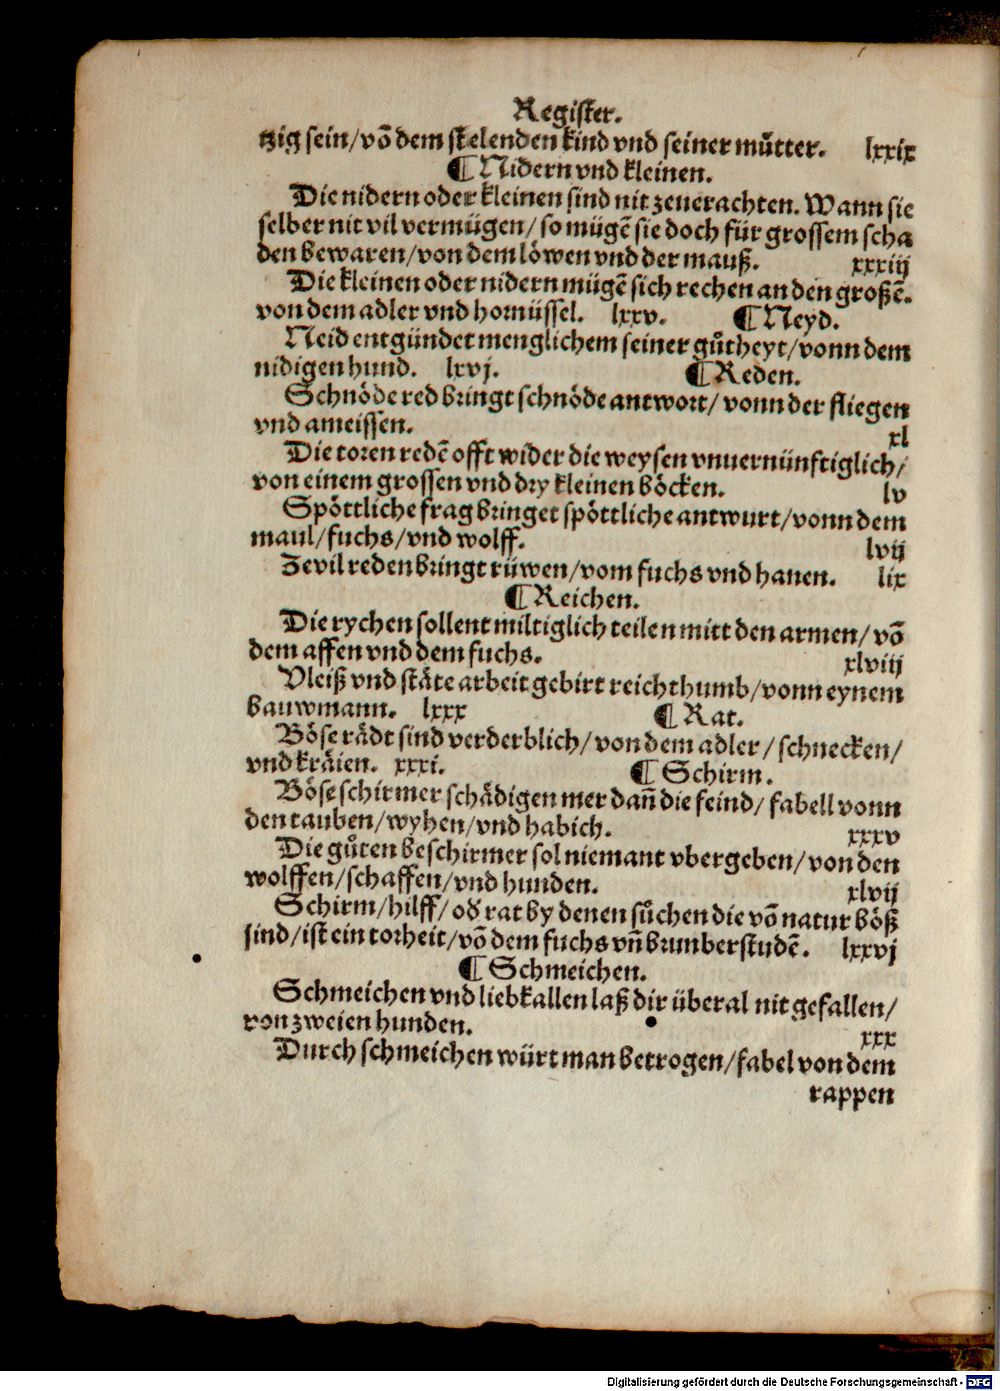 Register.
tzig sein/võ dem stelenden kind vnd seiner můtter. lxxix
¶ Nidern vnd kleinen.
Die nidern oder kleinen sind nit zeuerachten. Wann sie
selber nit vil vermügen/ so mügẽ sie doch für grossem scha
den bewaren/von dem löwen vnd der mauß. xxxiij
Die kleinen oder nidern mügẽ sich rechen an den großẽ.
von dem adler vnd hornüssel. lxxv. ¶ Neyd.
Neid entgündet menglichem seiner gůtheyt/vonn dem
nidigen hund. lxvj. ¶ Reden.
Schnöde red bringt schnöde antwort/ vonn der fliegen
vnd ameissen. xl
Die toren redẽ offt wider die weysen vnuernünftiglich/
von einem grossen vnd dry kleinen böcken. lv
Spöttliche frag bringet spöttliche antwurt/vonn dem
maul/fuchs/vnd wolff. lvij
Zevil reden bringt rüwen/vom fuchs vnd hanen. lix
¶ Reichen.
Die rychen sollent miltiglich teilen mitt den armen/ võ
dem affen vnd dem fuchs. xlviij
Vleiß vnd stäte arbeit gebirt reichthumb/vonn eynem
bauwmann. lxxx ¶ Rat.
Böse rädt sind verderblich/von dem adler/schnecken/
vnd kräien. xxxi. ¶ Schirm.
Böse schirmer schädigen mer dañ die feind/ fabell vonn
den tauben/wyhen/vnd habich. xxxv
Die gůten beschirmer sol niemant vbergeben/von den
wolffen/schaffen/vnd hunden. xlvij
Schirm/hilff/ oď rat by denen sůchen die võ natur böß
sind/ist ein torheit/võ dem fuchs vñ brunberstudẽ. lxxvj
¶ Schmeichen.
Schmeichen vnd liebkallen laß dir überal nit gefallen/
von zweien hunden. xxx
Durch schmeichen würt man betrogen/fabel von dem
rappen
Digitalisierung gefördert durch die Deutsche Forschungsgemeinschaft - DFG